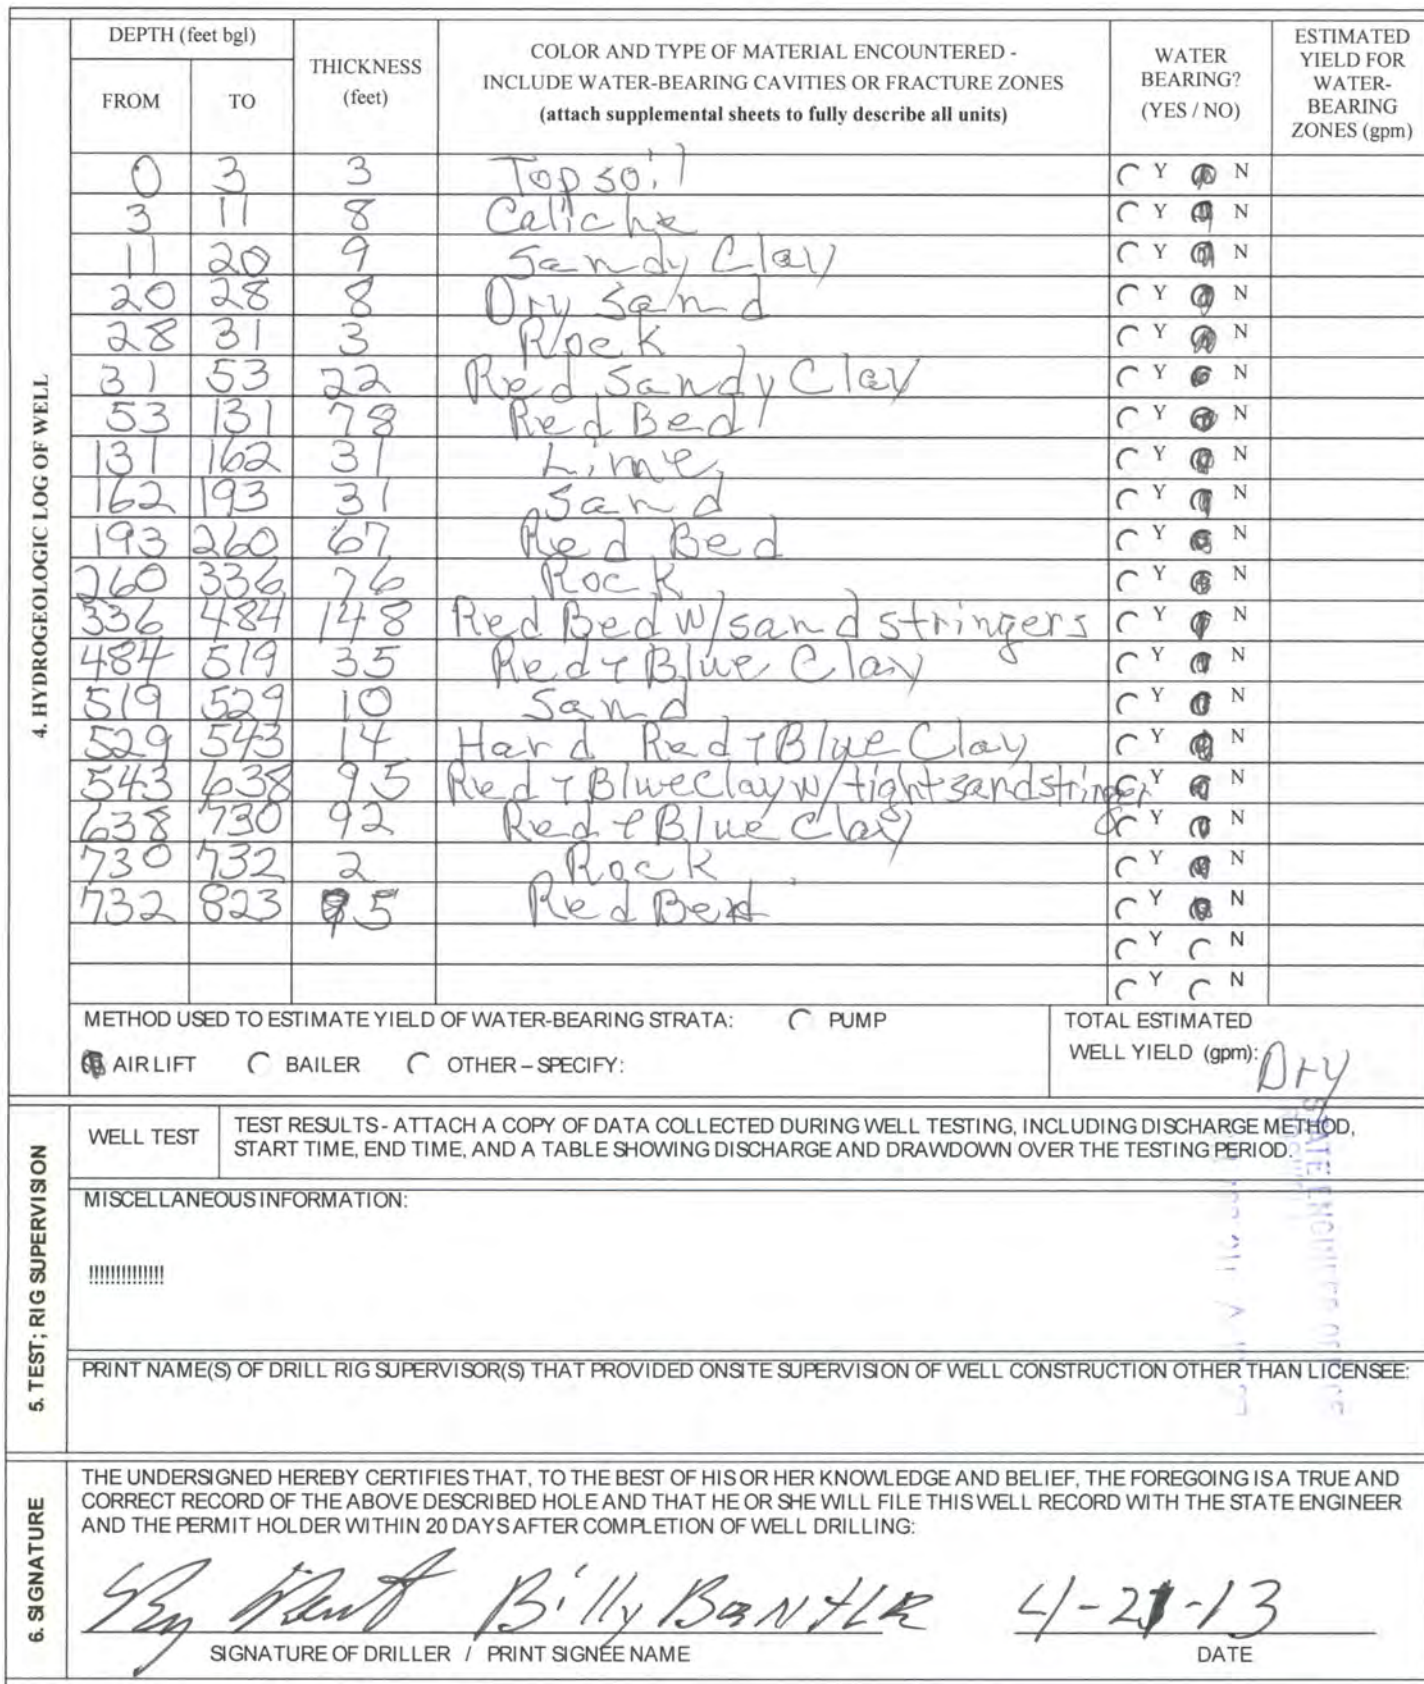 4. HYDROGEOLOGIC LOG OF WELL
DEPTH (feet bgl)
FROM TO
THICKNESS
(feet)
COLOR AND TYPE OF MATERIAL ENCOUNTERED -
INCLUDE WATER-BEARING CAVITIES OR FRACTURE ZONES
(attach supplemental sheets to fully describe all units)
WATER
BEARING?
(YES / NO)
ESTIMATED
YIELD FOR
WATER-
BEARING
ZONES (gpm)
0 3 3 Topsoil Y N
3 11 8 Caliche Y N
11 20 9 Sandy Clay Y N
20 28 8 Dry Sand Y N
28 31 3 Rock Y N
31 53 22 Red Sandy Clay Y N
53 131 78 Red Bed Y N
131 162 31 Lime Y N
162 193 31 Sand Y N
193 260 67 Red Bed Y N
260 336 76 Rock Y N
336 484 148 Red Bed w/sand stringers Y N
484 519 35 Red + Blue Clay Y N
519 529 10 Sand Y N
529 543 14 Hard Red + Blue Clay Y N
543 638 95 Red + Blue Clay w/tight sand stringer Y N
638 730 92 Red + Blue Clay Y N
730 732 2 Rock Y N
732 823 95 Red Bed Y N
Y N
Y N
METHOD USED TO ESTIMATE YIELD OF WATER-BEARING STRATA: PUMP
AIR LIFT BAILER OTHER – SPECIFY:
TOTAL ESTIMATED
WELL YIELD (gpm): Dry
5. TEST; RIG SUPERVISION
WELL TEST
TEST RESULTS - ATTACH A COPY OF DATA COLLECTED DURING WELL TESTING, INCLUDING DISCHARGE METHOD,
START TIME, END TIME, AND A TABLE SHOWING DISCHARGE AND DRAWDOWN OVER THE TESTING PERIOD.
STATE ENGINEER OFFICE
MISCELLANEOUS INFORMATION:
!!!!!!!!!!!!!!
PRINT NAME(S) OF DRILL RIG SUPERVISOR(S) THAT PROVIDED ONSITE SUPERVISION OF WELL CONSTRUCTION OTHER THAN LICENSEE:
6. SIGNATURE
THE UNDERSIGNED HEREBY CERTIFIES THAT, TO THE BEST OF HIS OR HER KNOWLEDGE AND BELIEF, THE FOREGOING IS A TRUE AND
CORRECT RECORD OF THE ABOVE DESCRIBED HOLE AND THAT HE OR SHE WILL FILE THIS WELL RECORD WITH THE STATE ENGINEER
AND THE PERMIT HOLDER WITHIN 20 DAYS AFTER COMPLETION OF WELL DRILLING:
Billy 4-21-13
SIGNATURE OF DRILLER / PRINT SIGNEE NAME DATE